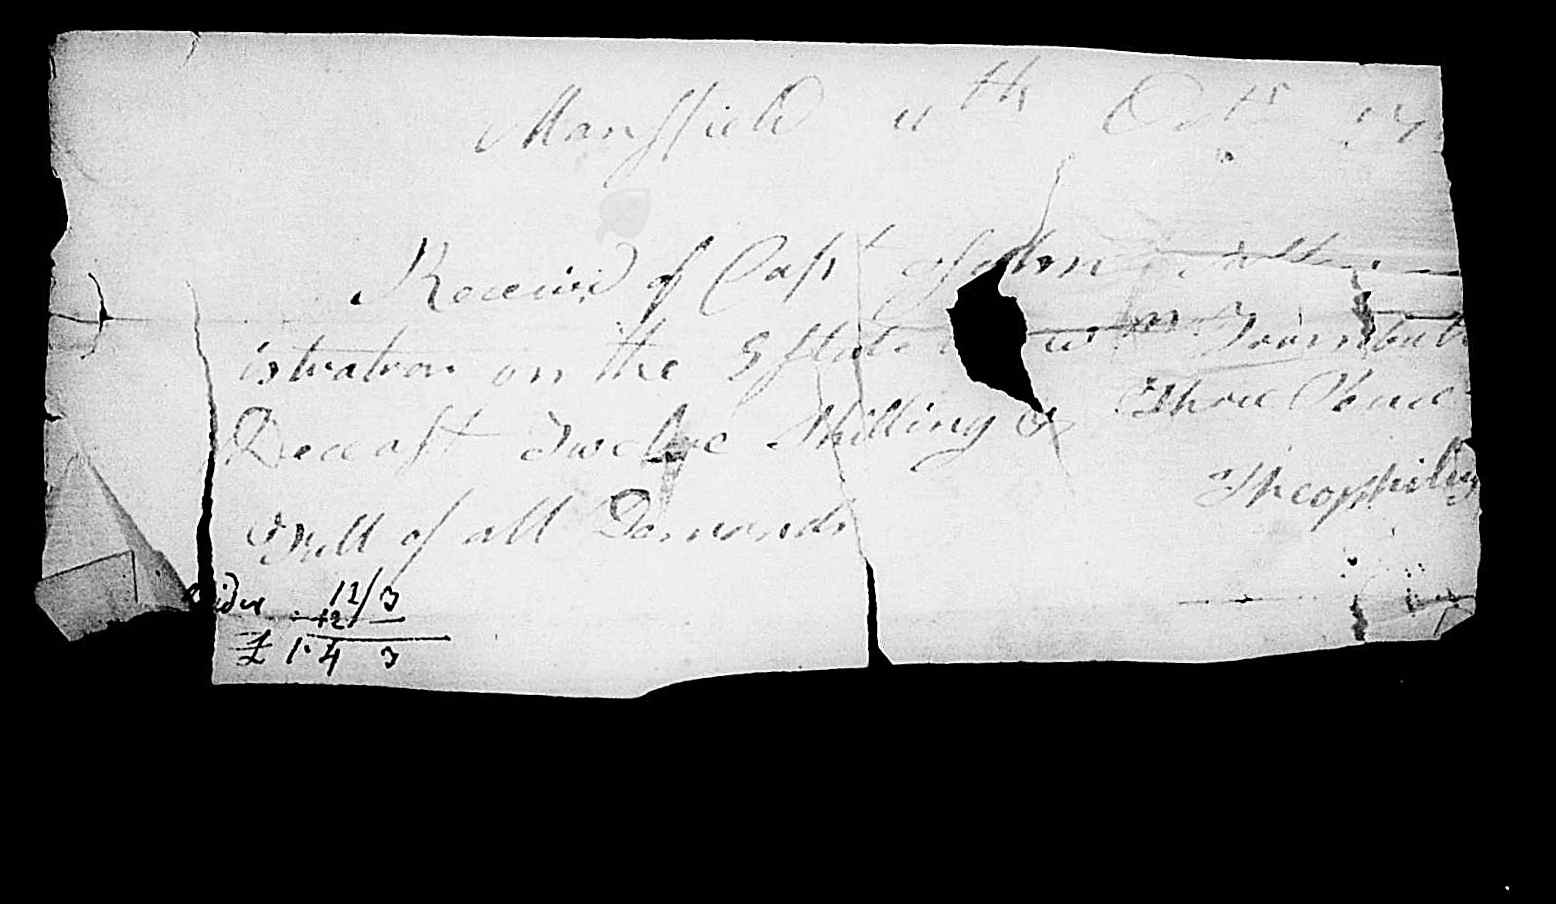 Mansfield 11th Octr 17
Receivd of Capt John
istrator on the Estate wm Turnbull
Deceast Twelve Shilling & Three Pence
Full of all Demands Theophilus
12/3
12/
£ 1. 4 3